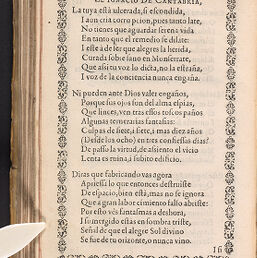 EL IGNACIO DE CANTABRIA,
La tuya está ulcerada, si escondida,
I aun cria corro prision, pues tanto late,
No tienes que aguardar serena vida
En tanto que el remedio se dilate:
I este à de ser que alegres la herida,
Curada sobre fano en Monserrate,
Que assi tu voz lo dicta, no la estraña,
I voz de la conciencia nunca engaña.
Ni pueden ante Dios valer engaños,
Porque sus ojos son del alma espias,
Que linces, ven tras essos toscos paños
Algunas temerarias fantasias:
Culpas de siete, i siete, i mas diez años
(Desde los ocho) en tres confiessas dias?
De passo la virtud, de assiento el vicio
Lenta es ruina, i subito edificio.
Diras que fabricando vas agora
Apriessa lo que entonces destruiste
De espacio, bien está, mas no se ignora
Que a gran labor cimiento falso
Por esto vès fantasmas a deshora,
I sumergido estas en sombra triste,
Señal de que el alegre Sol divino
Se fue de tu orizonte, o nunca vino.